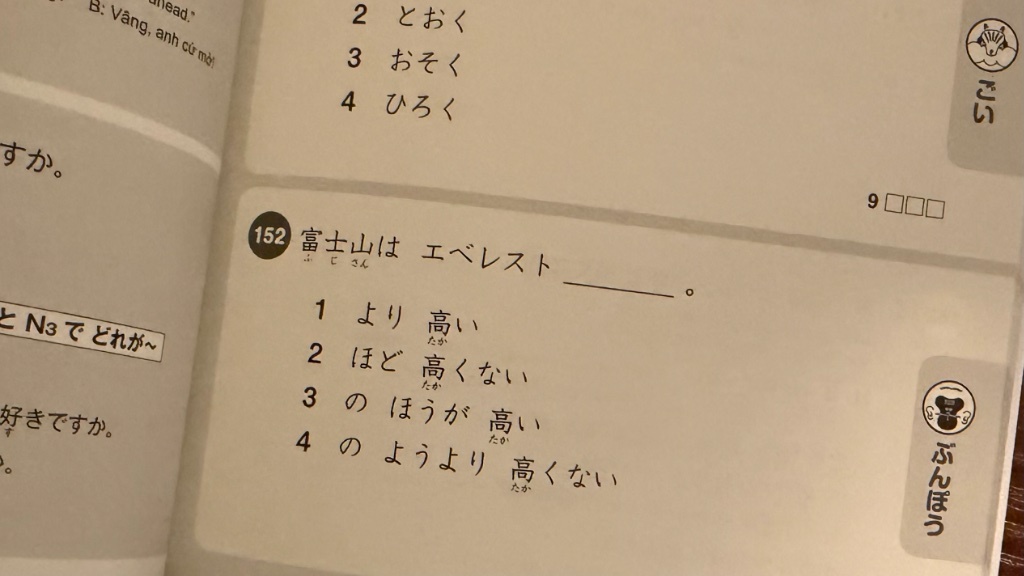 ahead."
B: Vâng, anh cứ mời
すか。
と N3で どれが~
好きですか。
す
2 とおく
3 おそく
4 ひろく
ごい
9 □□□
152 富士山は エベレスト ________ 。
ふ じ さん
1 より 高い
たか
2 ほど 高くない
たか
3 の ほうが 高い
たか
4 の ようより 高くない
たか
ぶんぽう